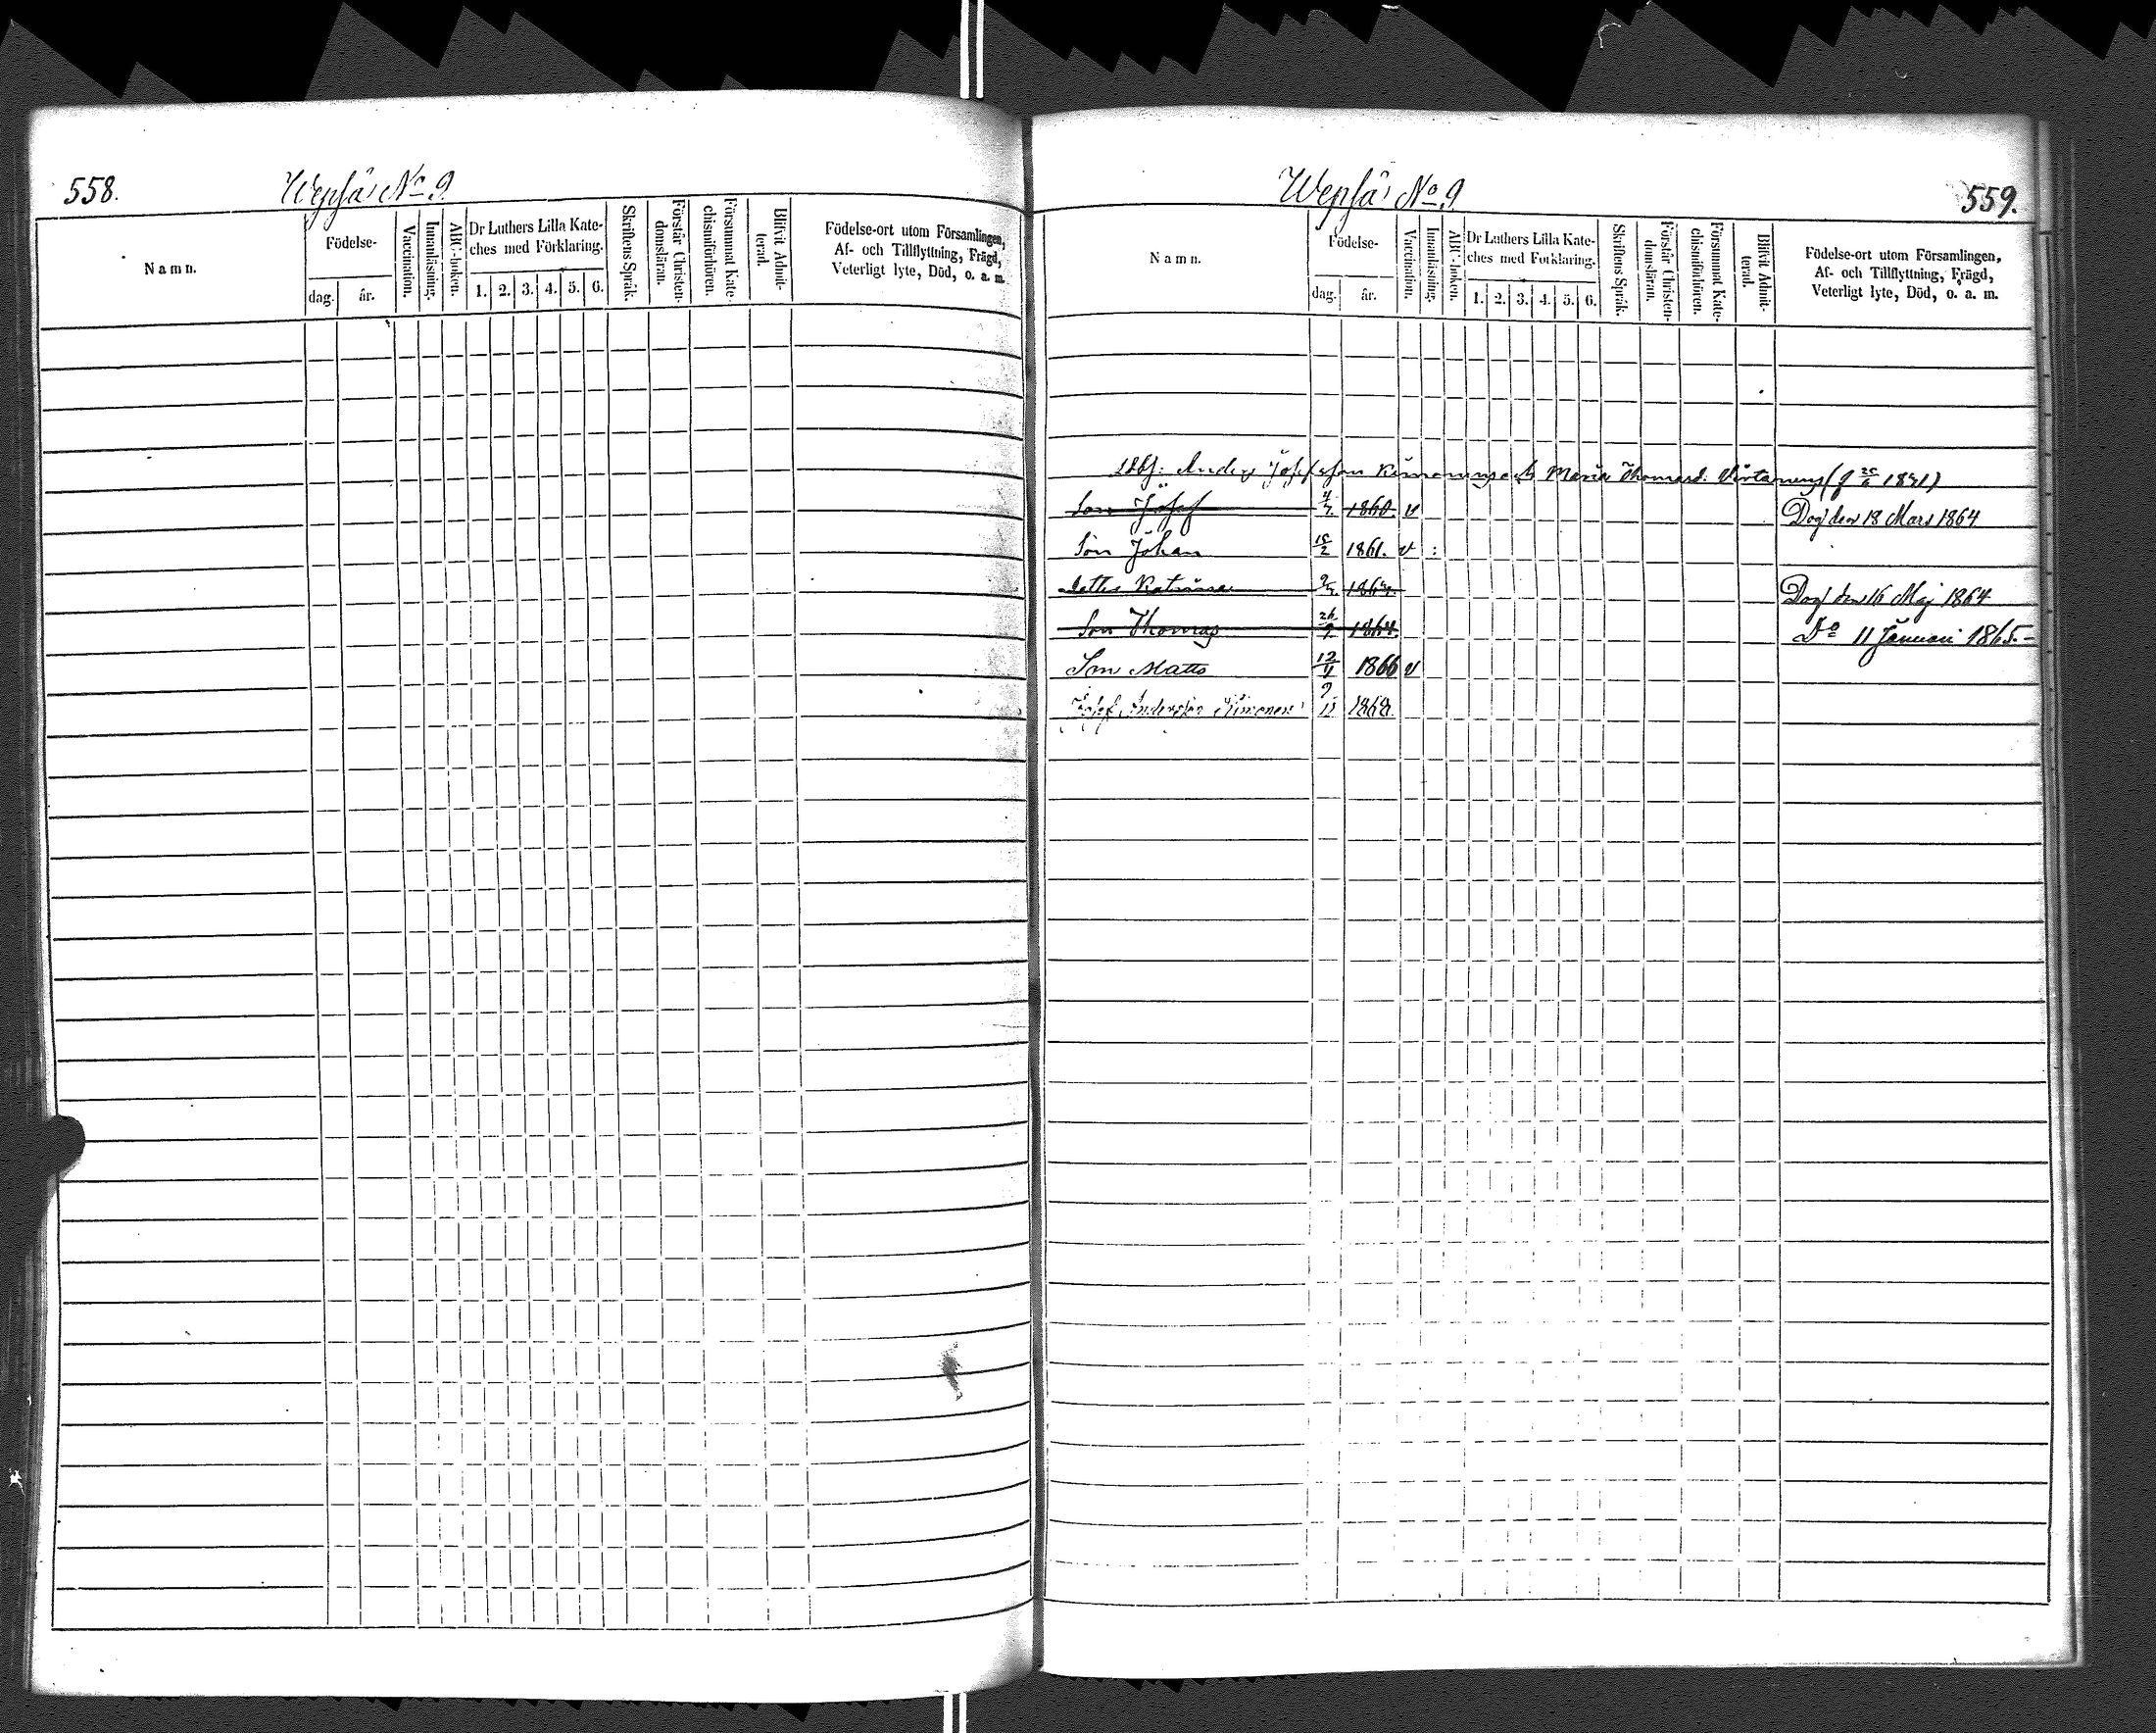 558. Wepsä No 9.
Namn.
Födelse-
dag. år.
Vaccination.
Innanläsning.
ABC-boken.
Dr Luthers Lilla Kate-
ches med Förklaring.
1. 2. 3. 4. 5. 6.
Skriftens Språk.
Förstår Christen-
domsläran.
Försummat Kate-
chismiförhören.
Blifvit Admit-
terad.
Födelse-ort utom Församlingen,
Af- och Tillflyttning, Frägd,
Veterligt lyte, Död, o. a. m.
Wepsä No 9. 559.
Namn.
Födelse-
dag. år.
Vaccination.
Innanläsning.
ABC-boken.
Dr Luthers Lilla Kate-
ches med Förklaring.
1. 2. 3. 4. 5. 6.
Skriftens Språk.
Förstår Christen-
domsläran.
Försummat Kate-
chismiförhören.
Blifvit Admit-
terad.
Födelse-ort utom Församlingen,
Af- och Tillflyttning, Frägd,
Veterligt lyte, Död, o. a. m.
Anders Josefsson Maria Thomasd:
Son Josef 1860. v Dog den 18 Mars 1864
Son Johan 1861. v
Katarina Dog den 16 Maj 1864
Son Thomas 26/9 1864. Do 11 Januari 1865.-
Son Matts 12/11 1866 v
Josef Andersson Kimonen 1868.